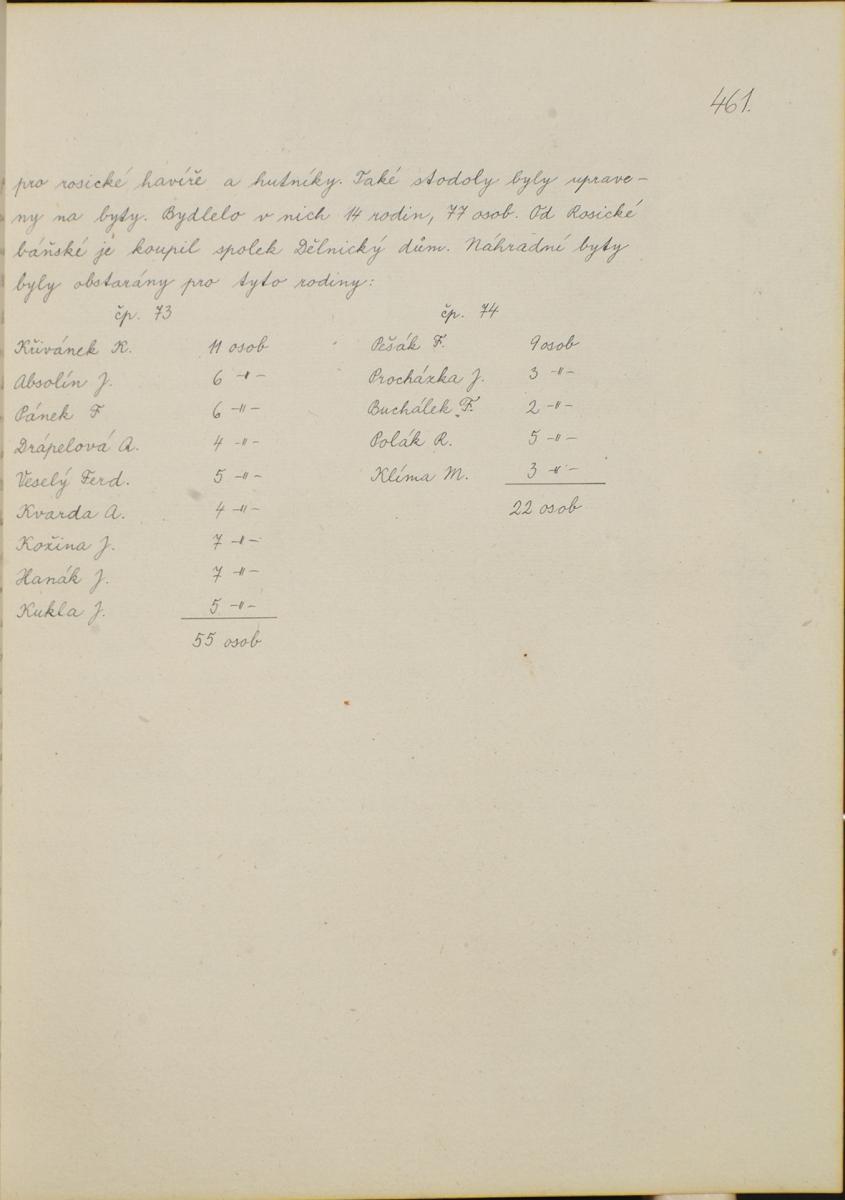 461.
pro rosické havíře a hutníky. Také stodoly byly uprave-
ny na byty. Bydlelo v nich 14 rodin, 77 osob. Od Rosické
báňské je koupil spolek Dělnický dům. Náhradní byty
byly obstarány pro tyto rodiny:
čp. 73 čp. 74
Křivánek K. 11 osob Pešák F. 9 osob
Absolín J. 6 -"- Procházka J. 3 -"-
Pánek F 6 -"- Buchálek F. 2 -"-
Drápelová A. 4 -"- Polák R. 5 -"-
Veselý Ferd. 5 -"- Klíma M. 3 -"-
Kvarda A. 4 -"- 22 osob
Kožina J. 7 -"-
Hanák J. 7 -"-
Kukla J. 5 -"-
55 osob